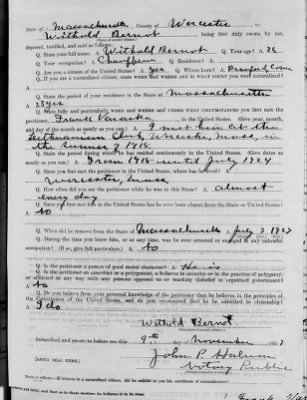 State of Massachusetts, County of Worcester ss:
Withold Bernot being first duly sworn by me,
deposed, testified, and said as follows:
Q. State your full name. A. Withold Bernot Q. Your age? 26
Q. Your occupation? A. Chauffeur Q. Residence? A.
Q. Are you a citizen of the United States? A. Yes Q. Where born? A. Conn
Q. If you are a naturalized citizen, state when and in what county you were naturalized?
A.
Q. State the period of your residence in the State of Massachusetts
A. years
Q. State fully and particularly, when and where and under what circumstances you first met the
petitioner, Frank in the United States. (Give year, month,
and day of the month as nearly as you can.) A. I met him at the
Lithuanian Club, Worcester, Mass, in
the summer of 1918
Q. State the period during which he resided continuously in the United States. (Give dates as
nearly as you can.) A. From 1918 until July 1924
Q. Since you first met the petitioner in the United States, where has he lived?
Worcester, Mass
Q. How often did you see the petitioner while he was in this State? A. almost
every day
Q. Since you first met him in the United States has he been absent from the State or United States?
A. no
Q. When did he remove from the State of Massachusetts July 3 1924
Q. During the time you knew him, or at any time, was he ever arrested or engaged in any unlawful
occupation? (If so, give full particulars.) A. no
Q. Is the petitioner a person of good moral character? A. He is
Q. Is the petitioner an anarchist or a polygamist, a believer in anarchy or in the practice of polygamy, or
affiliated in any way with any persons opposed to or teaching disbelief in organized government?
A. no
Q. Do you believe from your personal knowledge of the petitioner that he believes in the principles of
the Constitution of the United States, and do you recommend that he be admitted to citizenship?
A. I do
Withold Bernot
Subscribed and sworn to before me this 9th day November 192
John P.
Notary Public
[AFFIX SEAL HERE.]